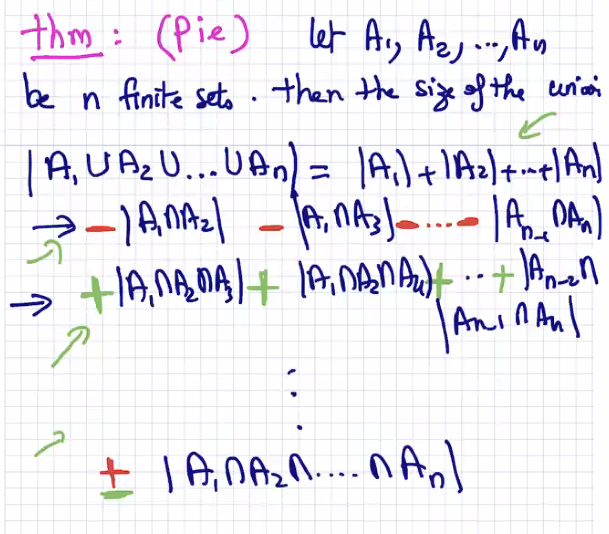 thm : (Pie) let A₁, A₂, ..., Aₙ
be n finite sets. then the size of the union
|A₁ ∪ A₂ ∪ ... ∪ Aₙ| = |A₁| + |A₂| + ... + |Aₙ|
→ - |A₁∩A₂| - |A₁∩A₃| - ... - |Aₙ₋₁∩Aₙ|
→ + |A₁∩A₂∩A₃| + |A₁∩A₂∩A₄| + ... + |Aₙ₋₂∩
|Aₙ₋₁∩Aₙ|
⋮
± |A₁∩A₂∩....∩Aₙ|